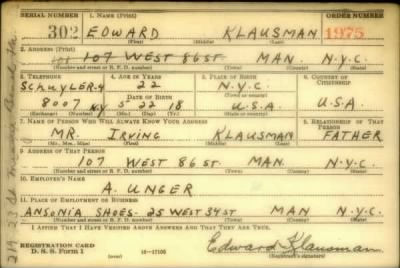 SERIAL NUMBER 1. NAME (Print) ORDER NUMBER
302 EDWARD KLAUSMAN 1975
(First) (Middle) (Last)
2. ADDRESS (Print)
107 WEST 86 ST. MAN. N.Y.C.
(Number and street or R. F. D. number) (Town) (County) (State)
3. TELEPHONE 4. AGE IN YEARS 5. PLACE OF BIRTH 6. COUNTRY OF CITIZENSHIP
SCHUYLER-4 22 N.Y.C.
DATE OF BIRTH
8007 N.Y. 5 22 18 U.S.A. U.S.A.
(Exchange) (Number) (Mo.) (Day) (Yr.) (State or country)
7. NAME OF PERSON WHO WILL ALWAYS KNOW YOUR ADDRESS 8. RELATIONSHIP OF THAT PERSON
MR. IRVING KLAUSMAN FATHER
(Mr., Mrs., Miss) (First) (Middle) (Last)
9. ADDRESS OF THAT PERSON
107 WEST 86 ST. MAN. N.Y.C.
(Number and street or R. F. D. number) (Town) (County) (State)
10. EMPLOYER'S NAME
A. UNGER
11. PLACE OF EMPLOYMENT OR BUSINESS
ANSONIA SHOES- 25 WEST 34 ST MAN N.Y.C.
(Number and street or R. F. D. number) (Town) (County) (State)
I AFFIRM THAT I HAVE VERIFIED ABOVE ANSWERS AND THAT THEY ARE TRUE.
REGISTRATION CARD
D. S. S. FORM 1 16-17105 Edward Klausman
(over) (Registrant's signature)